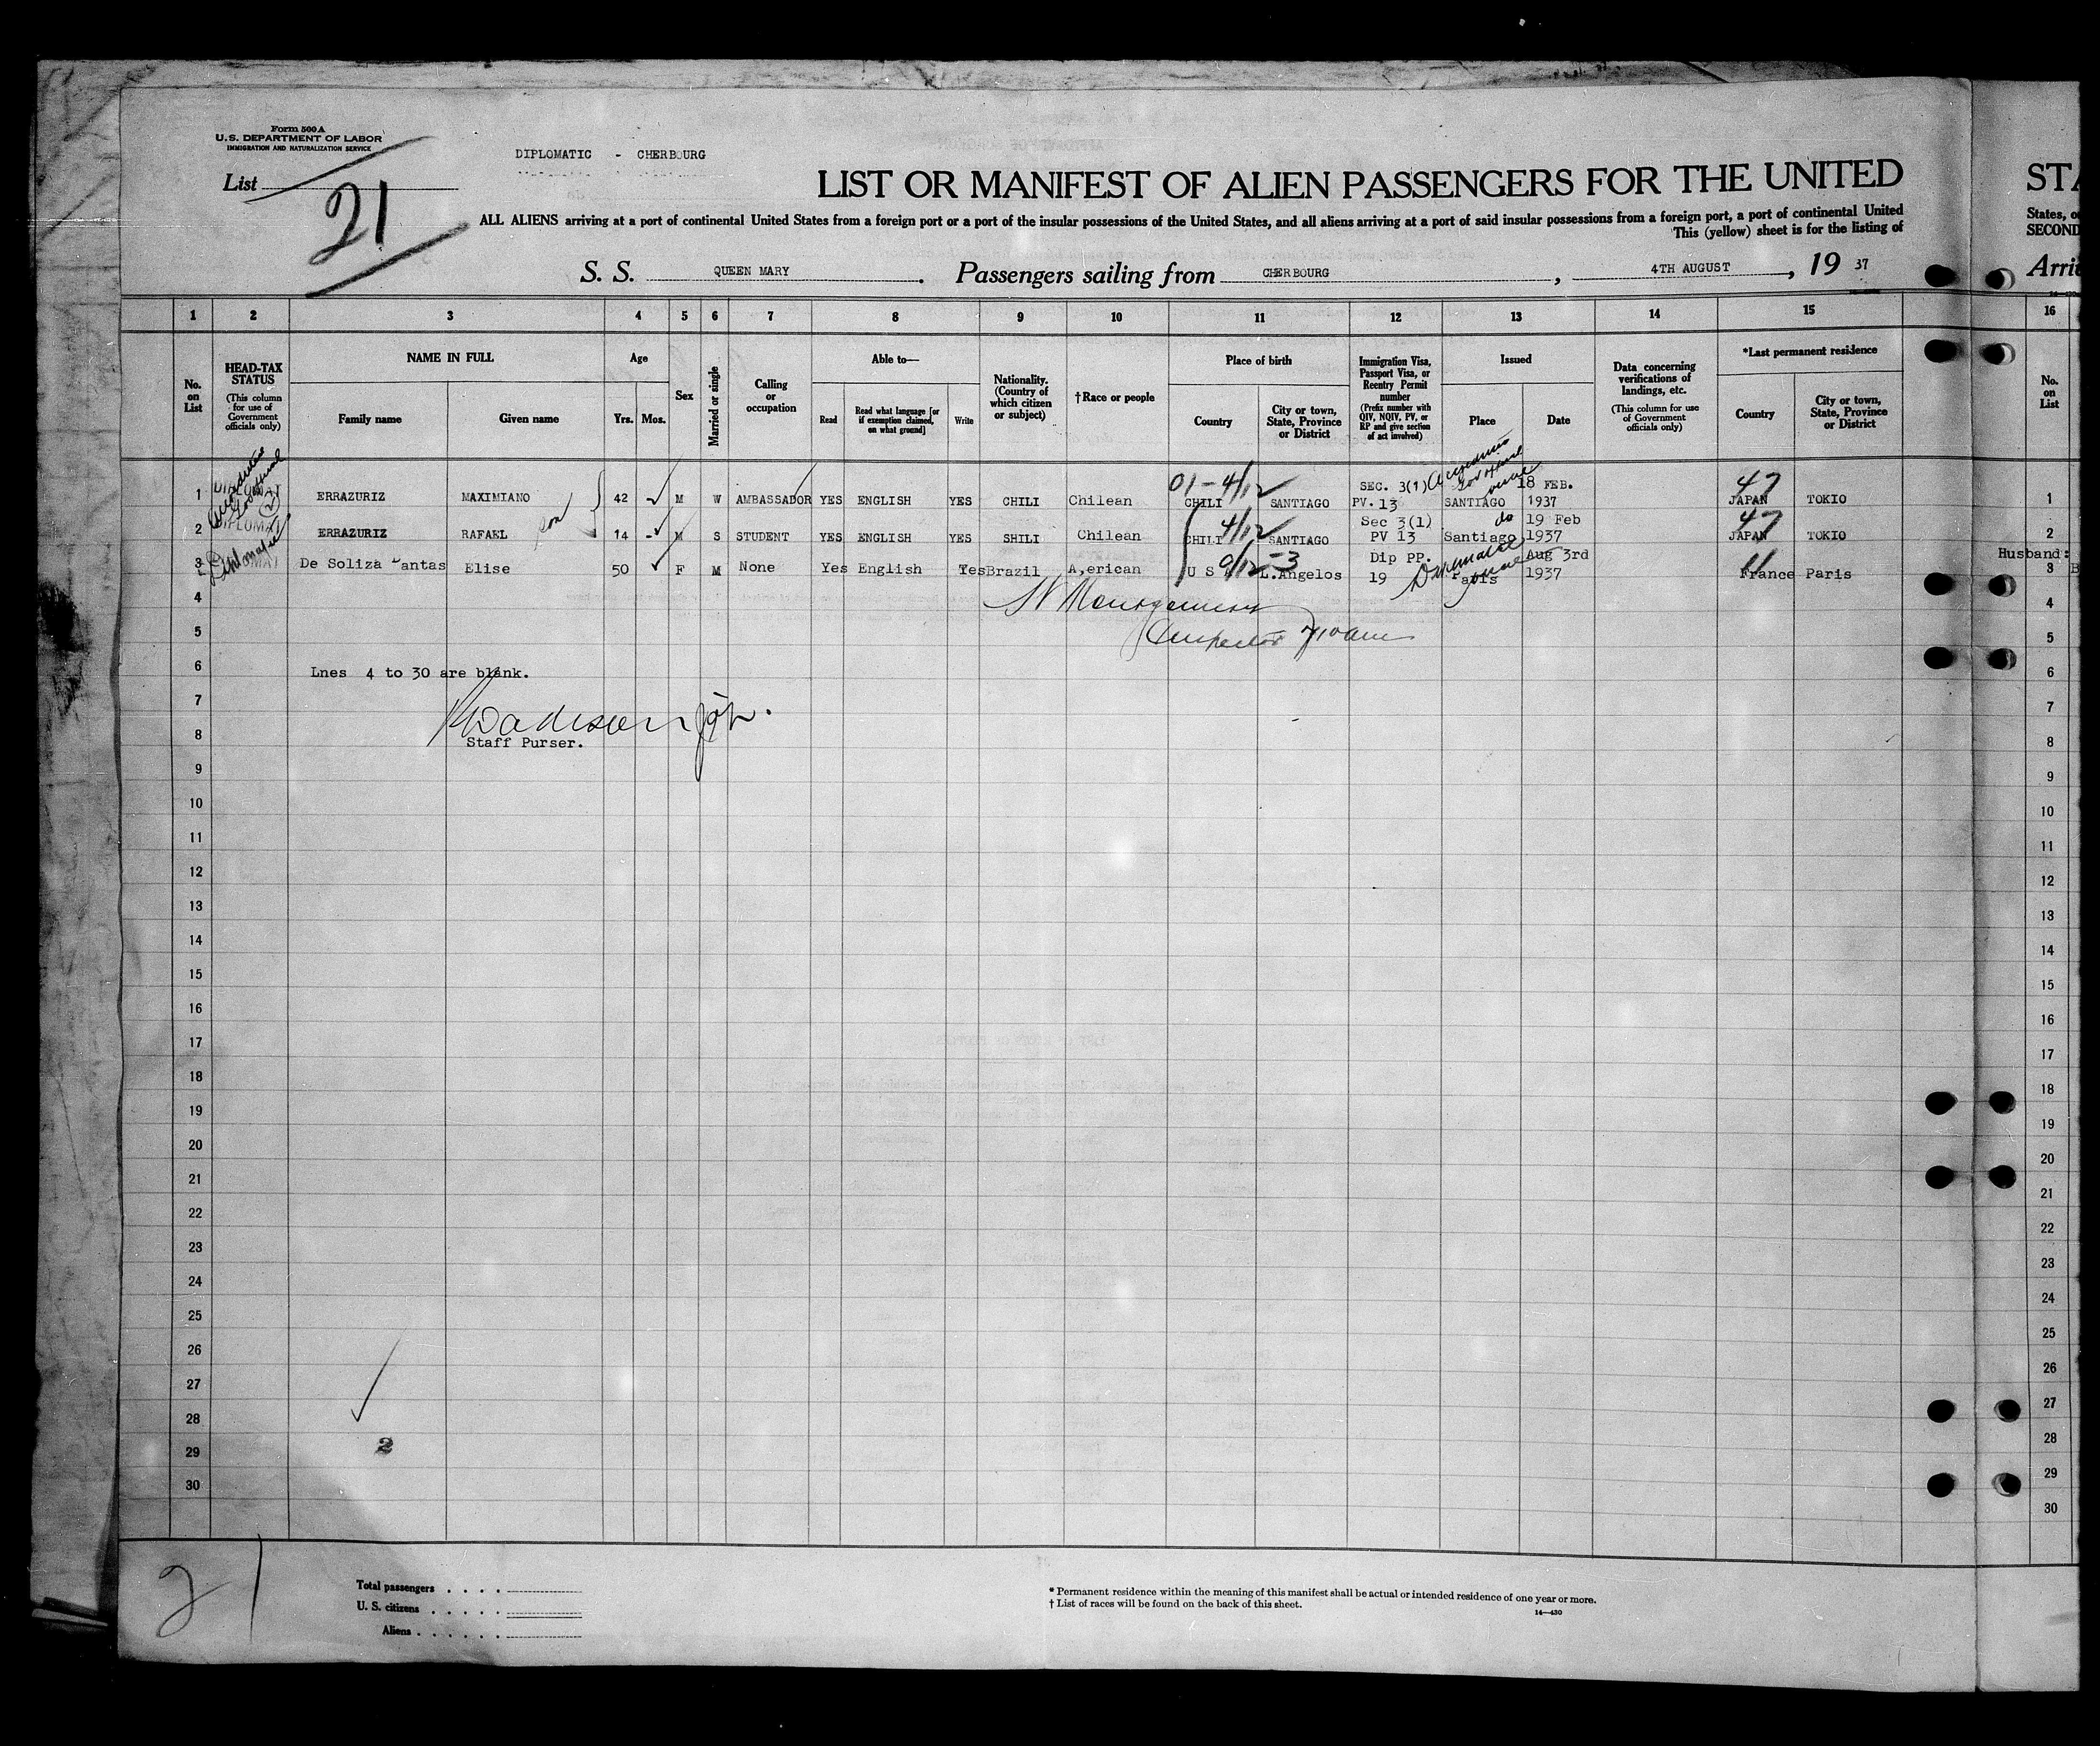 Form 500 A
U. S. DEPARTMENT OF LABOR
IMMIGRATION AND NATURALIZATION SERVICE
List 21
DIPLOMATIC - CHERBOURG
LIST OR MANIFEST OF ALIEN PASSENGERS FOR THE UNITED
ALL ALIENS arriving at a port of continental United States from a foreign port or a port of the insular possessions of the United States, and all aliens arriving at a port of said insular possessions from a foreign port, a port of continental United
This (yellow) sheet is for the listing of
S. S. QUEEN MARY. Passengers sailing from CHERBOURG, 4TH AUGUST, 19 37
STA
States, o
SECOND
Arri
1 2 3 4 5 6 7 8 9 10 11 12 13 14 15 16
No. on List
HEAD-TAX STATUS (This column for use of Government officials only)
NAME IN FULL
Family name
Given name
Age
Yrs. Mos.
Sex
Married or single
Calling or occupation
Able to—
Read
Read what language [or if exemption claimed, on what ground]
Write
Nationality. (Country of which citizen or subject)
†Race or people
Place of birth
Country
City or town, State, Province or District
Immigration Visa, Passport Visa, or Reentry Permit number (Prefix number with QIV, NQIV, PV, or RP and give section of act involved)
Issued
Place
Date
Data concerning verifications of landings, etc. (This column for use of Government officials only)
*Last permanent residence
Country
City or town, State, Province or District
No. on List
1 DIPLOMAT ERRAZURIZ MAXIMIANO 42 M W AMBASSADOR YES ENGLISH YES CHILI Chilean 01-4/12 CHILI SANTIAGO SEC. 3(1) PV. 13 SANTIAGO 18 FEB. 1937 47 JAPAN TOKIO 1
2 DIPLOMAT ERRAZURIZ RAFAEL son 14 - M S STUDENT YES ENGLISH YES SHILI Chilean 4/12 CHILI SANTIAGO Sec 3(1) PV 13 Santiago do 19 Feb 1937 47 JAPAN TOKIO 2
3 Diplomatic De Soliza antas Elise 50 F M None Yes English Yes Brazil A,erican U S 0/12-3 L.Angelos Dip PP. 19 Paris Aug 3rd 1937 11 France Paris Husband: 3
4 4
5 5
6 Lnes 4 to 30 are blank. 6
7 7
8 Staff Purser. 8
9 9
10 10
11 11
12 12
13 13
14 14
15 15
16 16
17 17
18 18
19 19
20 20
21 21
22 22
23 23
24 24
25 25
26 26
27 27
28 28
2
29 29
30 30
21
Total passengers
U. S. citizens
Aliens
* Permanent residence within the meaning of this manifest shall be actual or intended residence of one year or more.
† List of races will be found on the back of this sheet.
14—430